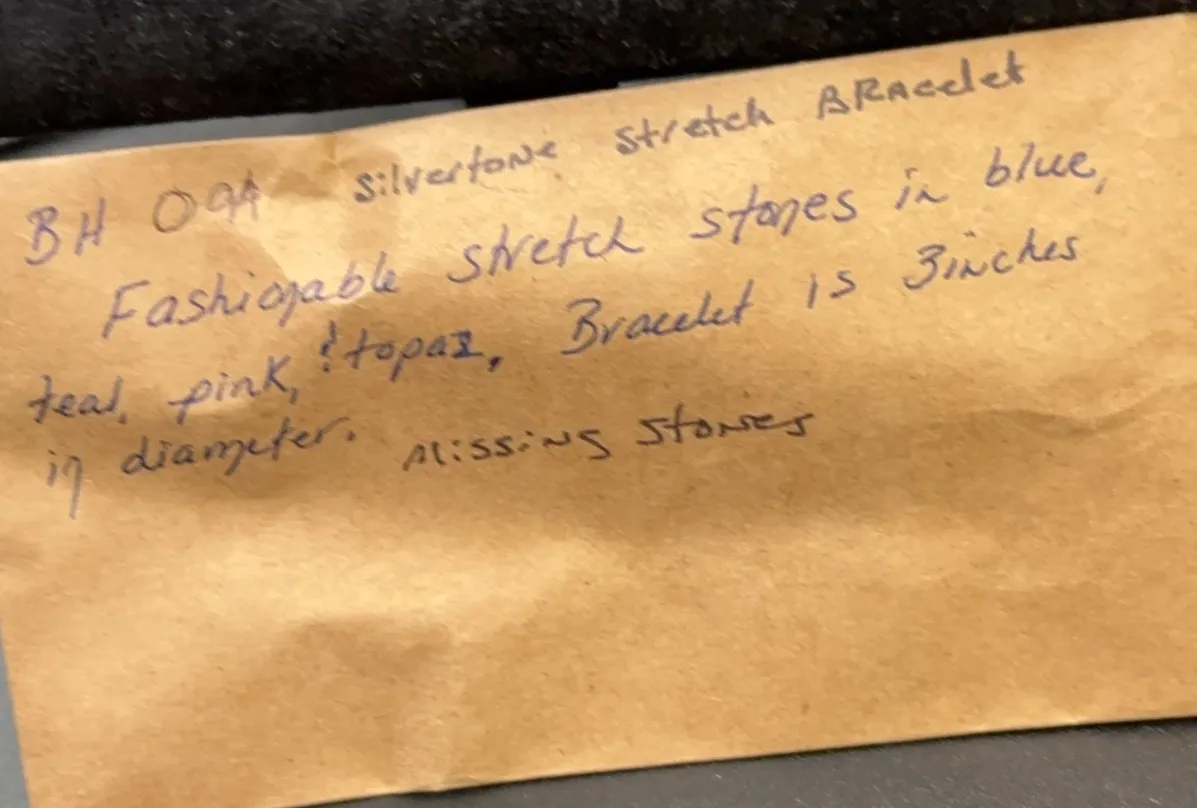 BH 09A Silvertone Stretch Bracelet
Fashionable stretch stones in blue,
teal, pink, & topaz, Bracelet is 3inches
in diameter. Missing Stones